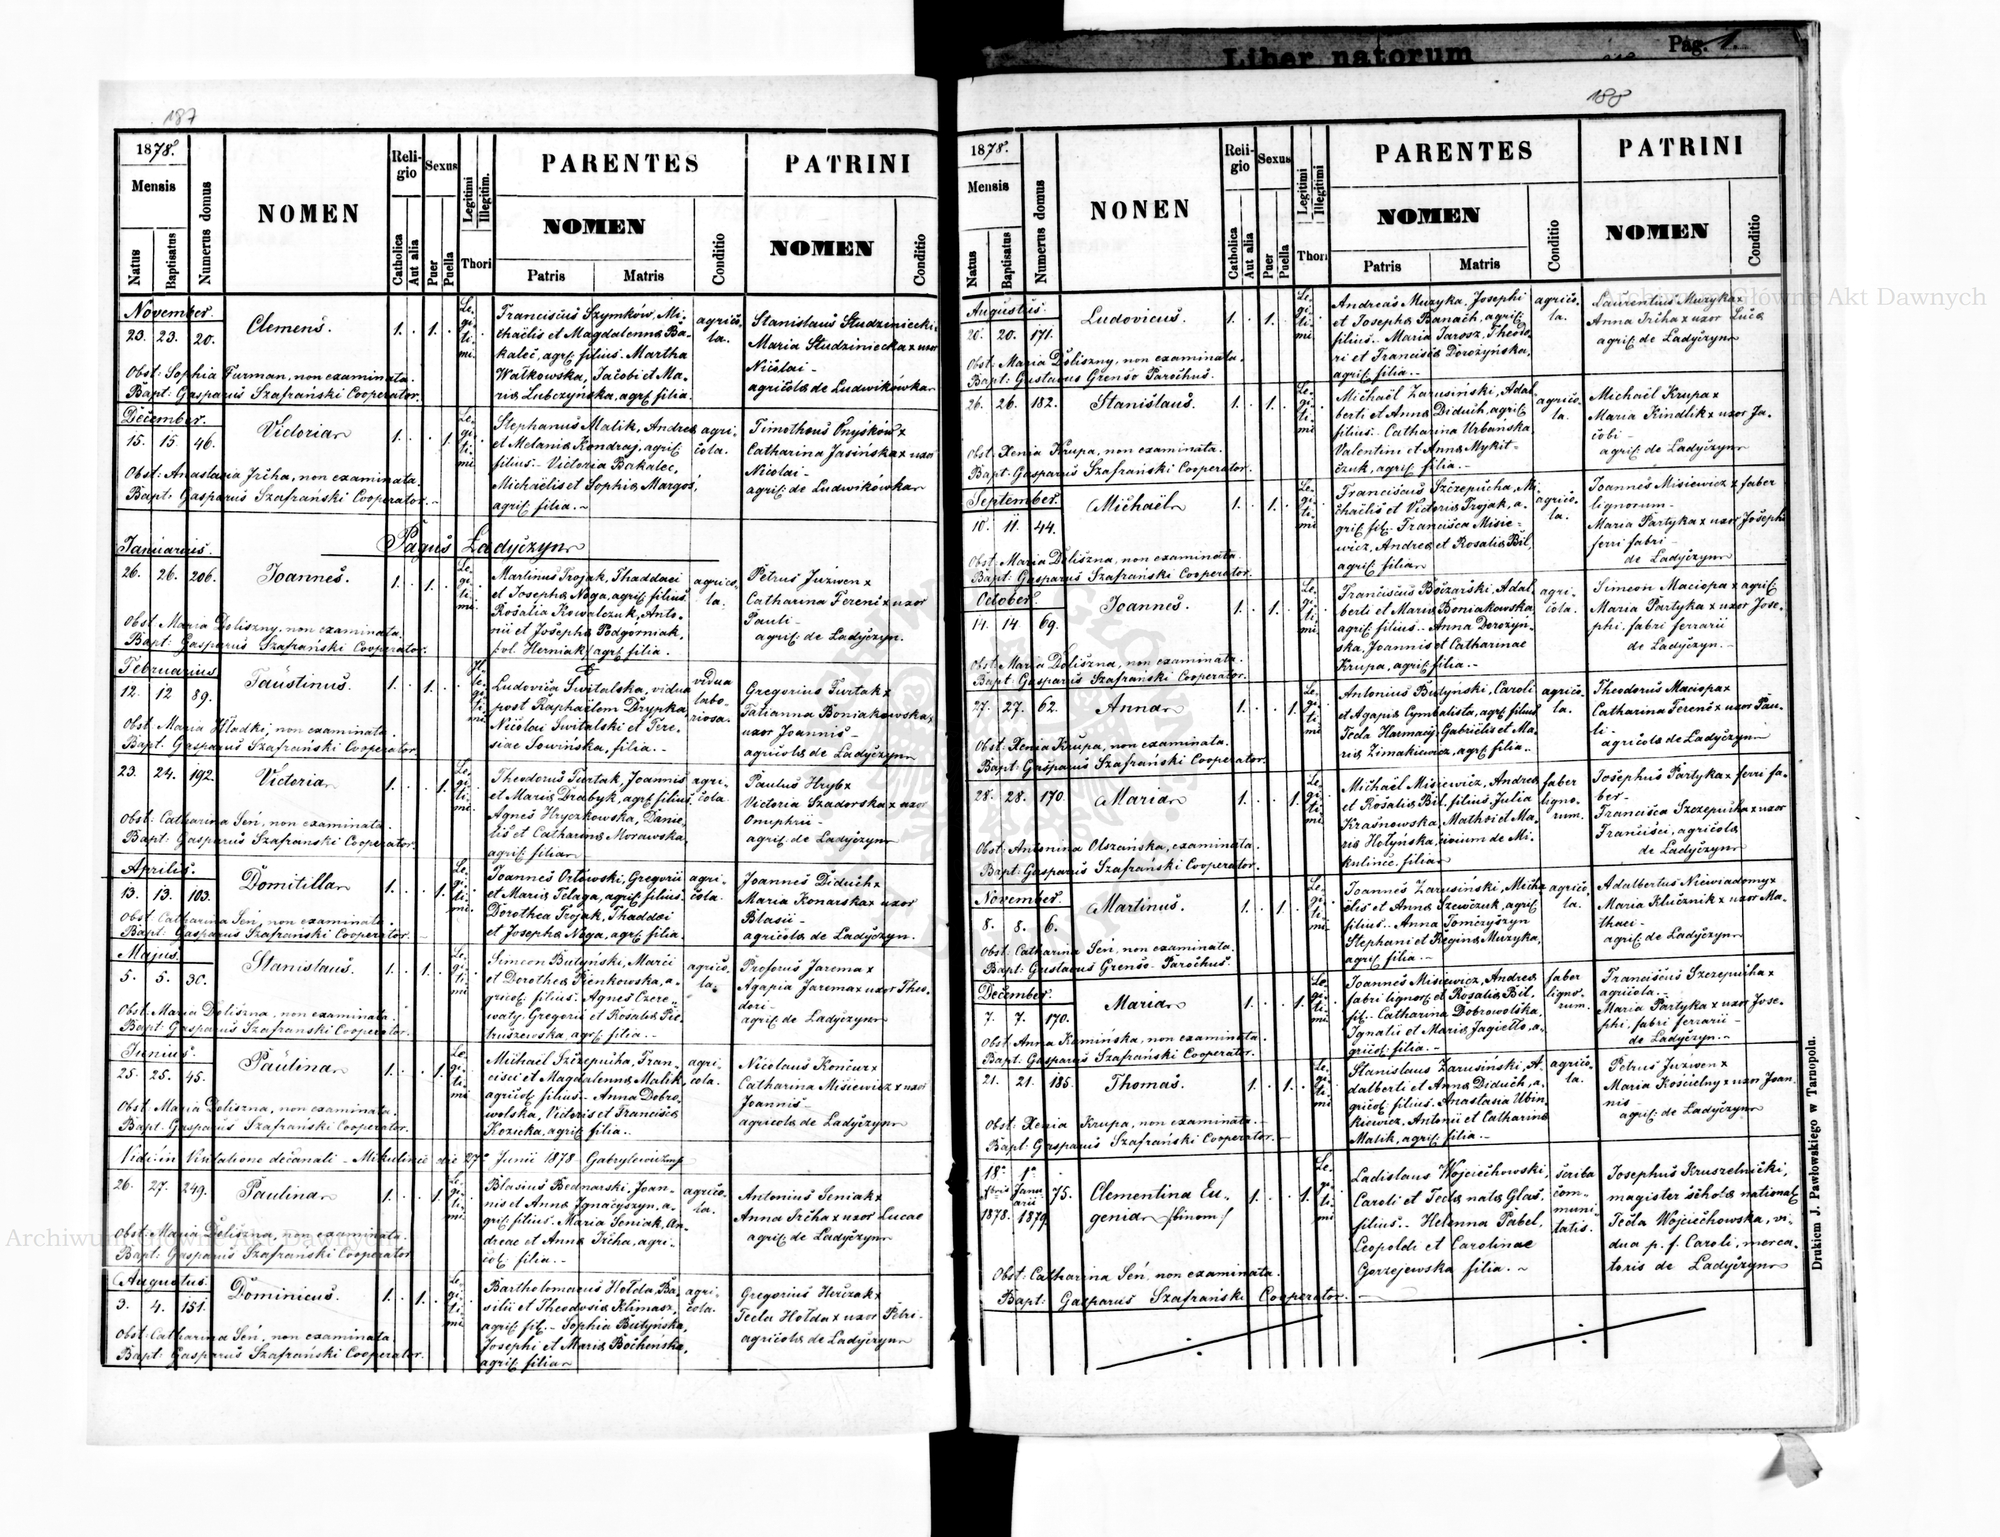 Liber natorum
Pag. 1.
187
1878.
Mensis
Natus
Baptisatus
Numerus domus
NOMEN
Religio
Catholica
Aut alia
Sexus
Puer
Puella
Legitimi
Illegitim.
Thori
PARENTES
NOMEN
Patris
Matris
Conditio
PATRINI
NOMEN
Conditio
November.
23. 23. 20.
Clemens.
1. 1.
Legitimi
Franciscus Szymków, Mi-
chaelis et Magdalenna Ba-
kaleć, agric. filius. Martha
Wałkowska, Jacobi et Ma-
ria Lubczynska, agric. filia.
agrico-
la.
Stanislaus Studziniecki
Maria Studziniecka x uxor
Nicolai -
agricola de Ludwikówka
Obst: Sophia Furman, non examinata.
Bapt: Gasparus Szafrański Cooperator.
December.
15. 15. 46.
Victoria
1. 1.
Legitimi
Stephanus Malik, Andrea
et Melania Kondraj, agric.
filius. Victoria Bakalec,
Michaelis et Sophia Margoś,
agric. filia. ~
agri-
cola.
Timotheus Onysków x
Catharina Jasińska x uxor
Nicolai -
agric. de Ludwikówka
Obst: Anastasia Irčha, non examinata.
Bapt: Gasparus Szafrański Cooperator.
Pagus Ladyczyn
Januarius.
26. 26. 206.
Joannes.
1. 1.
Legitimi
Martinus Trojak, Thaddaei
et Josepha Noga, agric. filius
Rosalia Kowalczuk, Anto-
nii et Josepha Podgorniak,
agric. filia.
agrico-
la.
Petrus Juzwen x
Catharina Ferenc x uxor
Pauli -
agric. de Ladyczyn.
Obst: Maria Doliszny, non examinata.
Bapt: Gasparus Szafrański Cooperator.
Februarius
12. 12 89.
Faustinus.
1. 1.
Ludovica Switalska, vidua
post Raphaelem Drypka,
Nicolai Switalski et Tere-
siae Sowińska, filia. -
vidua
labo-
riosa.
Gregorius Turtak x
Tatianna Boniakowska x
uxor Joannis -
agricola de Ladyczyn
Obst: Maria Hladki, non examinata.
Bapt: Gasparus Szafrański Cooperator
23. 24. 192.
Victoria
1. 1.
Legitimi
Theodorus Turtak, Joannis
et Maria Drabyk, agric. filius.
Agnes Hryczkowska, Danie-
lis et Catharina Morawska,
agric. filia
agri-
cola.
Paulus Hryb x
Victoria Szadorska x uxor
Onuphrii -
agric. de Ladyczyn
Obst: Catharina Seń, non examinata.
Bapt: Gasparus Szafrański Cooperator
Aprilis.
13. 13. 103.
Domitilla
1. 1.
Legitimi
Joannes Orłowski, Gregorii
et Maria Telaga, agric. filius
Dorothea Trojak, Thaddaei
et Josepha Noga, agric. filia.
agri-
cola.
Joannes Diduch x
Maria Konarska x uxor
Blasii -
agricola de Ladyczyn.
Obst: Catharina Seń, non examinata.
Bapt: Gasparus Szafrański Cooperator.
Majus.
5. 5. 30.
Stanislaus.
1. 1.
Legitimi
Simeon Butyński, Marci
et Dorothea Pienkowska, a-
gricol. filius. Agnes Czere-
waty, Gregorii et Rosalia Pie-
truszewska agric. filia. -
agrico-
la.
Proforus Jarema x
Agapia Jarema x uxor Theo-
dori -
agric. de Ladyczyn
Obst: Maria Doliszna, non examinata.
Bapt: Gasparus Szafrański Cooperator.
Junius.
25. 25. 45.
Paulina
1. 1.
Legitimi
Michael Szczepucha, Fran-
cisci et Magdalenna Malik
agricol. filius. Anna Dobro-
wolska, Victoris et Francisca
Kozicka, agric. filia. -
agri-
cola.
Nicolaus Koncur x
Catharina Misiewicz x uxor
Joannis -
agricola de Ladyczyn
Obst: Maria Doliszna, non examinata.
Bapt: Gasparus Szafrański Cooperator.
Vidi in Visitatione decanali - Mikulince die 27. Junii 1878
26. 27. 249.
Paulina
1. 1.
Legitimi
Blasius Bednarski, Joan-
nis et Anna Ignacyszyn, a-
gric. filius. Maria Seniak, An-
dreae et Anna Irčha, agri-
col. filia. -
agrico-
la.
Antonius Seniak x
Anna Irčha x uxor Lucae
agric. de Ladyczyn
Obst: Maria Doliszna, non examinata.
Bapt: Gasparus Szafrański Cooperator
Augustus.
3. 4. 151.
Dominicus.
1. 1.
Legitimi
Bartholomaeus Hołda, Ba-
silii et Theodosia Klimasz,
agric. fil. - Sophia Butyńska,
Josephi et Maria Bochenska,
agric. filia
agri-
cola.
Gregorius Herczak x
Tecla Hołda x uxor Petri -
agricola de Ladyczyn
Obst: Catharina Seń, non examinata.
Bapt: Gasparus Szafrański Cooperator.
188
1878.
Mensis
Natus
Baptisatus
Numerus domus
NONEN
Religio
Catholica
Aut alia
Sexus
Puer
Puella
Legitimi
Illegitimi
Thori
PARENTES
NOMEN
Patris
Matris
Conditio
PATRINI
NOMEN
Conditio
Augustus.
20. 20. 171.
Ludovicus.
1. 1.
Legitimi
Andreas Muzyka, Josephi
et Josepha Banach, agric.
filius. Maria Jarosz, Theodo-
ri et Francisca Dorożyńska,
agric. filia. -
agrico-
la.
Laurentius Muzyka x
Anna Irčha x uxor Luca
agric. de Ladyczyn
Obst: Maria Doliszny, non examinata.
Bapt: Gustavus Grenso Parochus.
26. 26. 182.
Stanislaus.
1. 1.
Legitimi
Michael Zarusiński, Adal-
berti et Anna Diduch, agric.
filius. Catharina Urbanska,
Valentini et Anna Mykit-
czuk, agric. filia. -
agrico-
la.
Michael Krupa x
Maria Kindlik x uxor Ja-
cobi -
agric. de Ladyczyn
Obst: Xenia Krupa, non examinata.
Bapt: Gasparus Szafrański Cooperator.
September.
10. 11. 44.
Michael
1. 1.
Legitimi
Franciscus Szczepucha, Mi-
chaelis et Victoria Trojak, a-
gric. fil. Francisca Misie-
wicz, Andrea et Rosalia Bil,
agric. filia
agrico-
la.
Joannes Misiewicz x faber
lignorum -
Maria Partyka x uxor Josephi
ferri fabri -
de Ladyczyn
Obst: Maria Doliszna, non examinata.
Bapt: Gasparus Szafrański Cooperator.
October.
14. 14 69.
Joannes.
1. 1.
Legitimi
Franciscus Boczarski, Adal-
berti et Maria Boniakowska,
agric. filius. - Anna Dorozyn-
ska, Joannis et Catharinae
Krupa, agric. filia. -
agri-
cola.
Simeon Maciopa x agric.
Maria Partyka x uxor Jose-
phi fabri ferrarii
de Ladyczyn. -
Obst: Maria Doliszna, non examinata.
Bapt: Gasparus Szafrański Cooperator.
27. 27. 62.
Anna
1. 1.
Legitimi
Antonius Butyński, Caroli
et Agapia Cymbalista, agric. filius
Tecla Harmacij, Gabrielis et Ma-
ria Zimakiewicz, agric. filia. -
agrico-
la.
Theodorus Maciopa x
Catharina Ferenc x uxor Pau-
li -
agricola de Ladyczyn
Obst: Xenia Krupa, non examinata.
Bapt: Gasparus Szafrański Cooperator.
28. 28. 170.
Maria
1. 1.
Legitimi
Michael Misiewicz, Andrea
et Rosalia Bil, filius. Julia
Krasnowska, Mathei et Ma-
ria Hołyńska, civium de Mi-
kulince, filia
faber
ligno-
rum.
Josephus Partyka x ferri fa-
ber -
Francisca Szczepucha x uxor
Francisci, agricola
de Ladyczyn
Obst: Antonina Olszańska, examinata.
Bapt: Gasparus Szafrański Cooperator.
November.
8. 8. 6.
Martinus.
1. 1.
Legitimi
Joannes Zarusiński, Micha-
elis et Anna Szewczuk, agric.
filius. - Anna Tomczyszyn
Stephani et Regina Muzyka,
agric. filia. -
agrico-
la.
Adalbertus Niewiadomy x
Maria Klucznik x uxor Ma-
thaei -
agric. de Ladyczyn
Obst: Catharina Seń, non examinata.
Bapt: Gustavus Grenso Parochus.
December.
7. 7. 170.
Maria
1. 1.
Legitimi
Joannes Misiewicz, Andrea
fabri lignor. et Rosalia Bil,
fil. - Catharina Dobrowolska,
Ignatii et Maria Jagiełło, a-
gricol. filia. -
faber
ligno-
rum.
Franciscus Szczepucha x
agricola. -
Maria Partyka x uxor Jose-
phi fabri ferrarii -
de Ladyczyn. -
Obst: Anna Kamińska, non examinata.
Bapt: Gasparus Szafrański Cooperator.
21. 21. 185.
Thomas.
1. 1.
Legitimi
Stanislaus Zarusiński, A-
dalberti et Anna Diduch, a-
gricol. filius. Anastasia Ubin-
kiewicz, Antonii et Catharina
Malik, agric. filia. -
agrico-
la.
Petrus Juzwen x
Maria Kościelny x uxor Joan-
nis -
agric. de Ladyczyn
Obst: Xenia Krupa, non examinata.
Bapt: Gasparus Szafrański Cooperator.
18. 1. 75.
Xbris Janu-
arii
1878. 1879
Clementina Eu-
genia /binom:/
1. 1.
Legitimi
Ladislaus Wojciechowski,
Caroli et Tecla nata Glas,
filius. - Helenna Pabel,
Leopoldi et Carolinae
Gorzejewska filia. ~
scriba
com-
muni-
tatis.
Josephus Kruszelnicki,
magister schola national.
Tecla Wojciechowska, vi-
dua p. f. Caroli, merca-
toris de Ladyczyn
Obst: Catharina Seń, non examinata.
Bapt: Gasparus Szafrański Cooperator.
Drukiem J. Pawłowskiego w Tarnopolu.
Archiwum Główne Akt Dawnych
Archiwum Główne Akt Dawnych